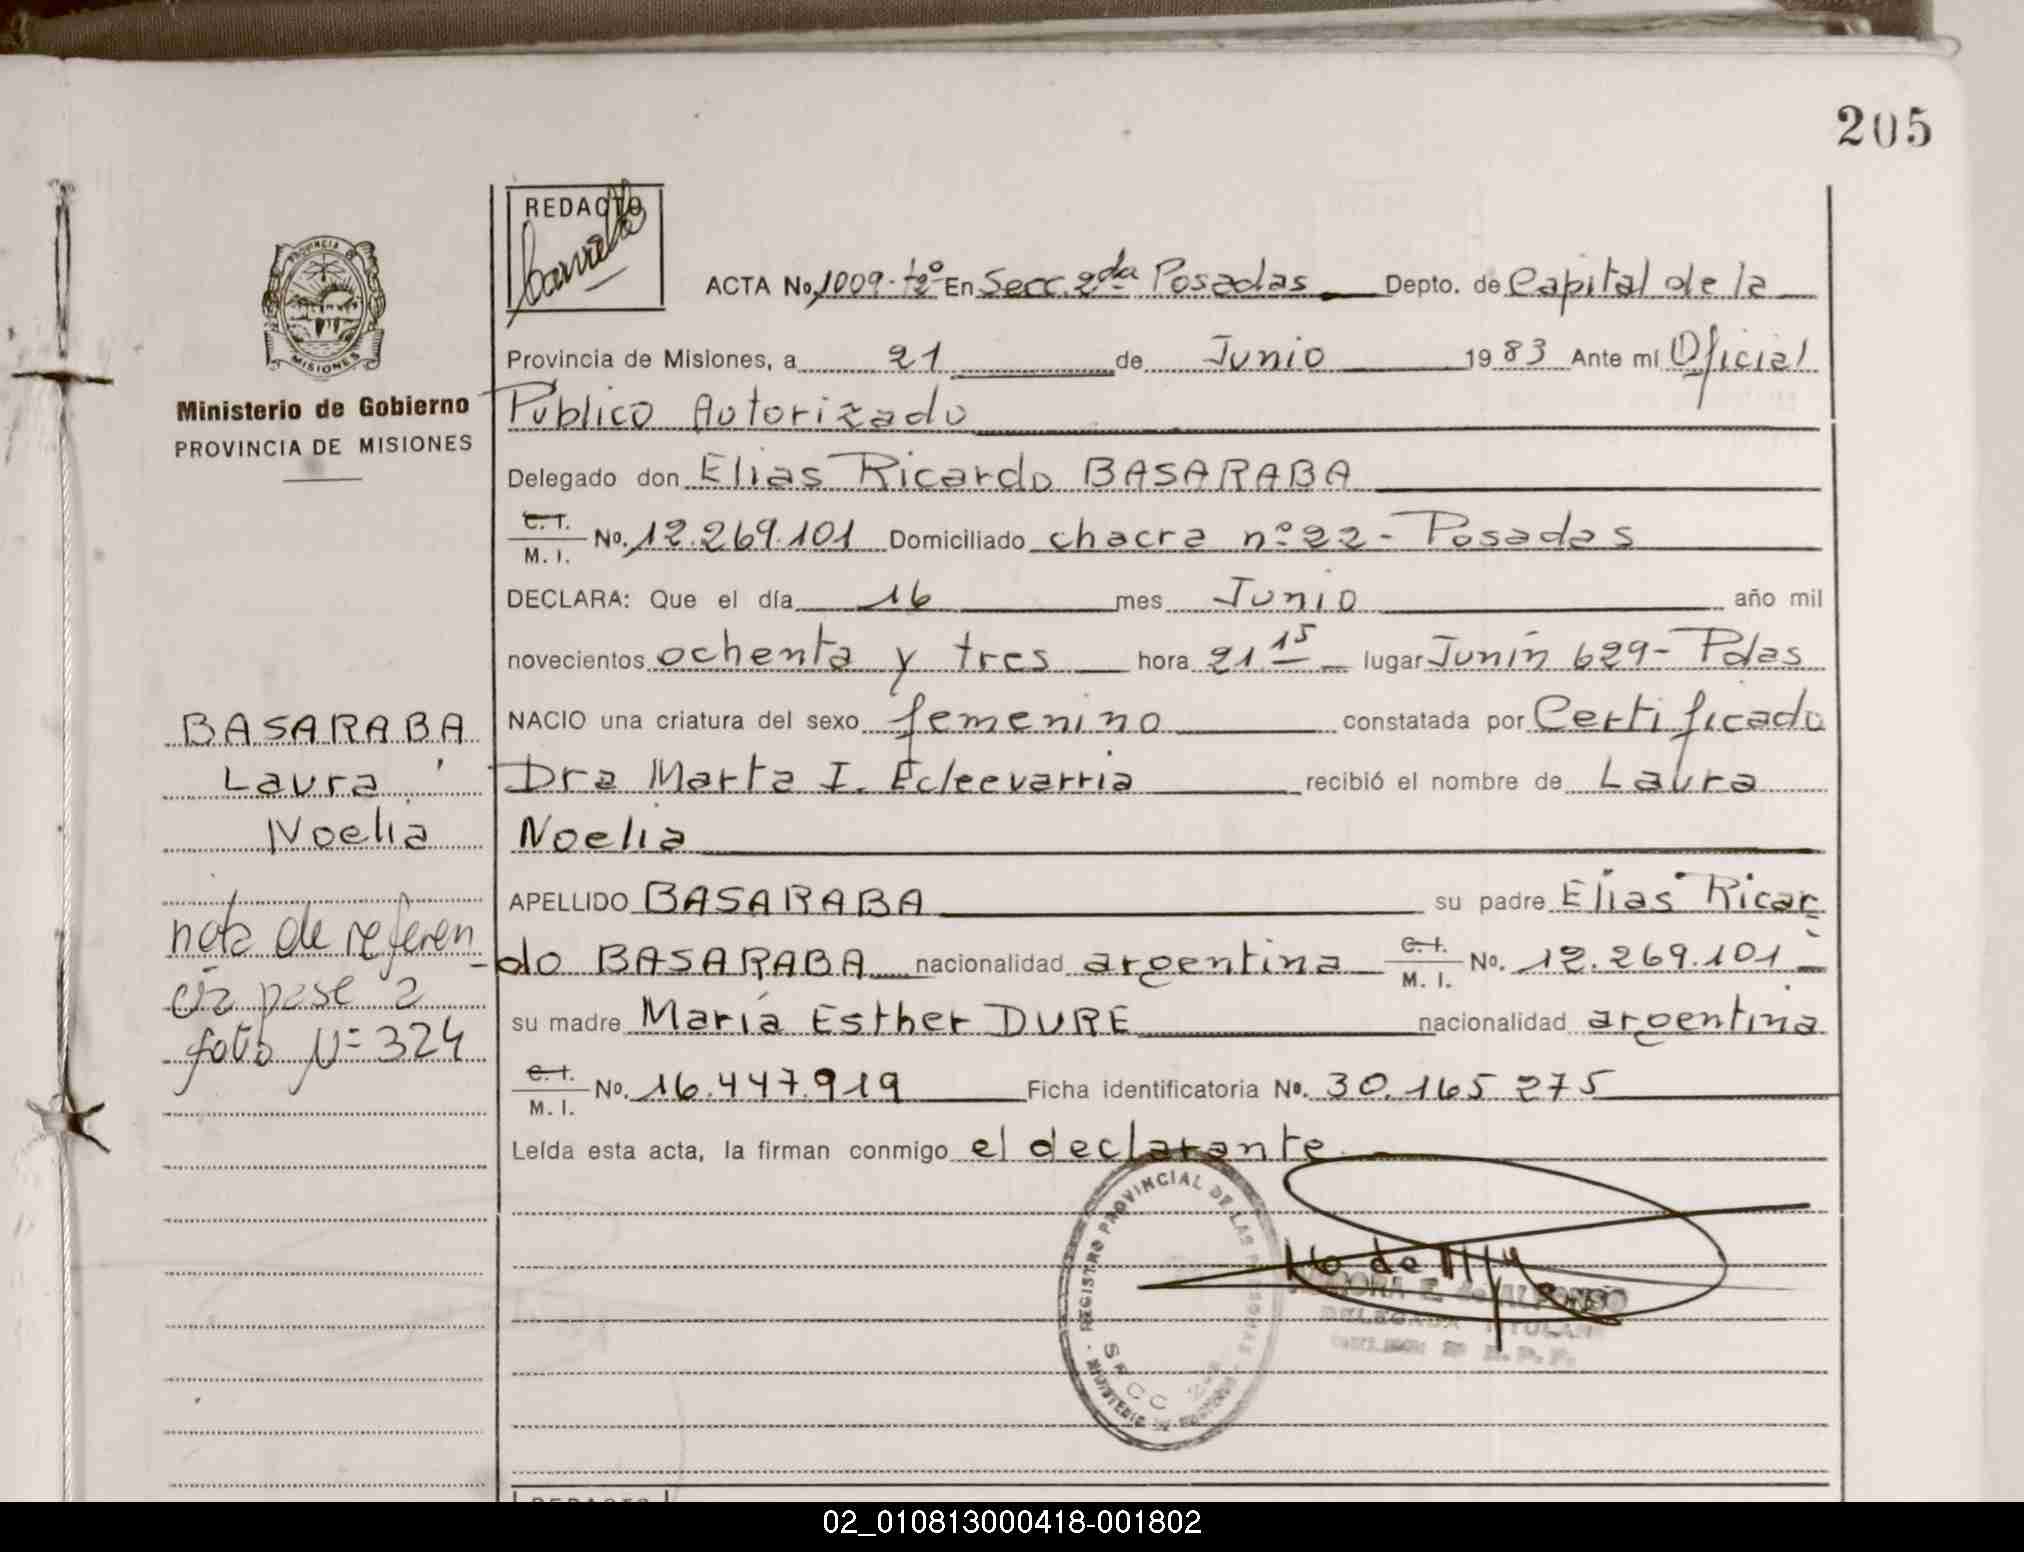 205
REDACTO
PROVINCIA DE MISIONES
ACTA No. 1009-tº2º En Secc. 2da Posadas Depto. de Capital de la
Provincia de Misiones, a 21 de Junio 1983 Ante mí Oficial
Ministerio de Gobierno
PROVINCIA DE MISIONES
Público Autorizado
Delegado don Elias Ricardo BASARABA
C. I. M. I. No. 12.269.101 Domiciliado chacra nº 22 - Posadas
DECLARA: Que el día 16 mes Junio año mil
novecientos ochenta y tres hora 21 15 lugar Junín 629 - Pdas
NACIO una criatura del sexo femenino constatada por Certificado
Dra Marta I. Ecleevarria recibió el nombre de Laura
Noelia
BASARABA
Laura
Noelia
APELLIDO BASARABA su padre Elias Ricar
do BASARABA nacionalidad argentina C. I. M. I. No. 12.269.101
su madre María Esther DURE nacionalidad argentina
C. I. M. I. No. 16.447.919 Ficha identificatoria No. 30.165.275
nota de referen
cia pase a
foto Nº 324
Leída esta acta, la firman conmigo el declarante
REGISTRO PROVINCIAL DE LAS PERSONAS
SECC 2da
E. de ALFONSO
DELEGADA TITULAR
REDACTO
02_010813000418-001802